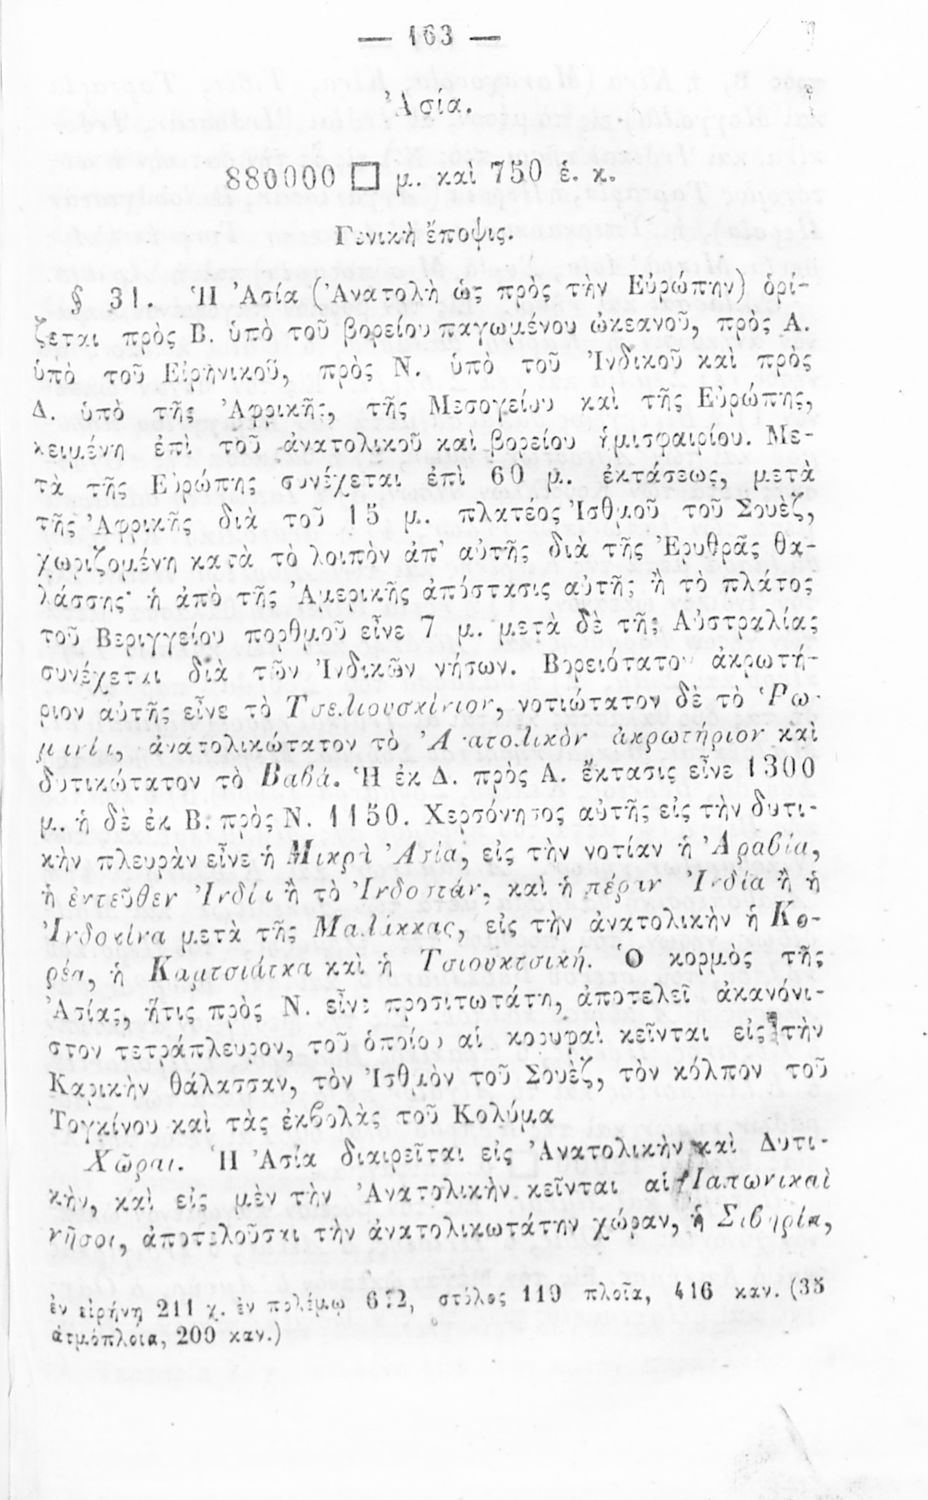 — 163 —
Ἀσία.
880000 □ μ. καὶ 750 ἑ. κ.
Γενικὴ ἔποψις.
§ 31. Ἡ Ἀσία (Ἀνατολὴ ὡς πρὸς τὴν Εὐρώπην) ὁρί-
ζεται πρὸς Β. ὑπὸ τοῦ βορείου παγωμένου ὠκεανοῦ, πρὸς Α.
ὑπὸ τοῦ Εἰρηνικοῦ, πρὸς Ν. ὑπὸ τοῦ Ἰνδικοῦ καὶ πρὸς
Δ. ὑπὸ τῆς Ἀφρικῆς, τῆς Μεσογείου καὶ τῆς Εὐρώπης,
κειμένη ἐπὶ τοῦ ἀνατολικοῦ καὶ βορείου ἡμισφαιρίου. Με-
τὰ τῆς Εὐρώπης συνέχεται ἐπὶ 60 μ. ἐκτάσεως, μετὰ
τῆς Ἀφρικῆς διὰ τοῦ 15 μ. πλατέος Ἰσθμοῦ τοῦ Σουὲζ,
χωριζομένη κατὰ τὸ λοιπὸν ἀπ' αὐτῆς διὰ τῆς Ἐρυθρᾶς θα-
λάσσης· ἡ ἀπὸ τῆς Ἀμερικῆς ἀπόστασις αὐτῆς ἢ τὸ πλάτος
τοῦ Βεριγγείου πορθμοῦ εἶνε 7 μ. μετὰ δὲ τῆς Αὐστραλίας
συνέχεται διὰ τῶν Ἰνδικῶν νήσων. Βορειότατον ἀκρωτή-
ριον αὐτῆς εἶνε τὸ Τσελιουσκίνιον, νοτιώτατον δὲ τὸ Ῥω-
μανία, ἀνατολικώτατον τὸ Ἀνατολικὸν ἀκρωτήριον καὶ
δυτικώτατον τὸ Βαβά. Ἡ ἐκ Δ. πρὸς Α. ἔκτασις εἶνε 1300
μ. ἡ δὲ ἐκ Β. πρὸς Ν. 1150. Χερσόνησος αὐτῆς εἰς τὴν δυτι-
κὴν πλευρὰν εἶνε ἡ Μικρὰ Ἀσία, εἰς τὴν νοτίαν ἡ Ἀραβία,
ἡ ἐντεῦθεν Ἰνδία ἢ τὸ Ἰνδοστάν, καὶ ἡ πέραν Ἰνδία ἢ ἡ
Ἰνδοκίνα μετὰ τῆς Μαλάκκας, εἰς τὴν ἀνατολικὴν ἡ Κο-
ρέα, ἡ Καμτσιάτκα καὶ ἡ Τσιουκτσική. Ὁ κορμὸς τῆς
Ἀσίας, ἥτις πρὸς Ν. εἶνε προσιτωτάτη, ἀποτελεῖ ἀκανόνι-
στον τετράπλευρον, τοῦ ὁποίου αἱ κορυφαὶ κεῖνται εἰς τὴν
Καρικὴν θάλασσαν, τὸν Ἰσθμὸν τοῦ Σουὲζ, τὸν κόλπον τοῦ
Τογκίνου καὶ τὰς ἐκβολὰς τοῦ Κολύμα
Χῶραι. Ἡ Ἀσία διαιρεῖται εἰς Ἀνατολικὴν καὶ Δυτι-
κὴν, καὶ εἰς μὲν τὴν Ἀνατολικὴν κεῖνται αἱ Ἰαπωνικαὶ
νῆσοι, ἀποτελοῦσαι τὴν ἀνατολικωτάτην χώραν, ἡ Σιβηρία,
ἐν εἰρήνῃ 211 χ. ἐν πολέμῳ 672, στόλος 119 πλοῖα, 416 καν. (35
ἀτμόπλοια, 200 καν.)